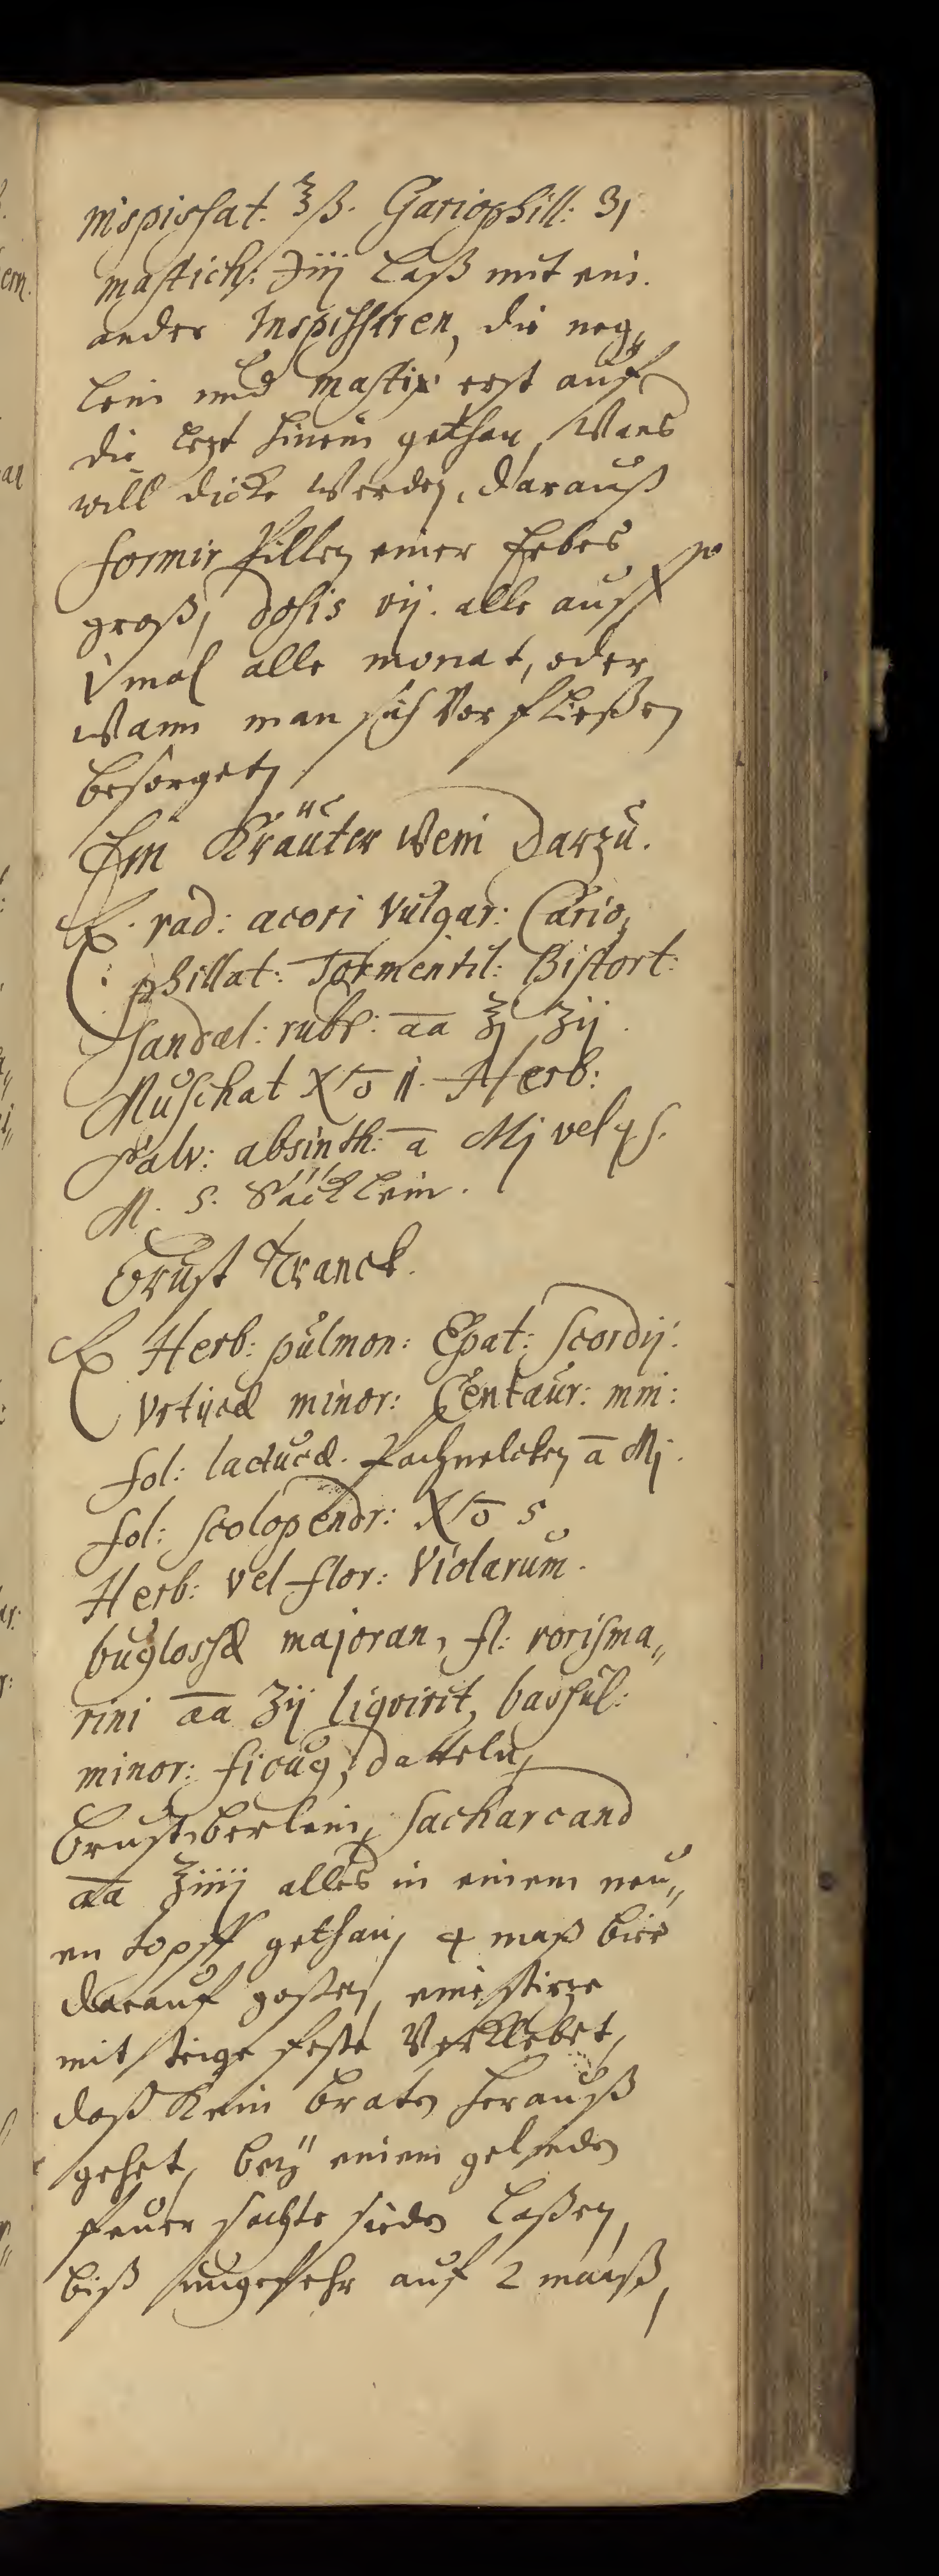 inspissat. ℥ß. Gariophill: ʒj
mastich: ℈iiij laß mit ein.
ander Inspissiren, die neg„
lein und mastix erst auf
die lezt hinein gethan, Wans
will dicke Werden, darauß
formir Pillen einer Erbes
groß, dosis vij. alle auff
1 mal alle monat, oder
Wann man sich Vor fließen
besorget,
Ein Kräuter Wein Darzu.
℞. rad: acori Vulgar: Cario„
phillat: Tormentil: Bistort:
Sandal: rubr: aa ℥j ʒij.
Muschat No ii. Herb:
Salv: absinth: a Mj vel qs.
M. S. Säcklein.
Brust Tranck.
℞ Herb: pulmon: Epat: Scordij:
Vrticæ minor: Centaur: min:
fol: lactucæ. a Mj.
fol: Scolopendr: No 5
Herb: vel flor: Violarum.
buglossæ majoran, fl: rorisma„
rini aa ʒij liqvirit, passul:
minor: ficug, datteln,
Brustberlein, Sacharcand
aa ʒiiij alles in einem neu„
en topff gethan, 4 maß bier
darauf goßen, eine stirze
mit teige feste Verklebet,
daß Kein braten herauß
gehet, bey einem gelinden
feuer sachte sieden laßen,
biß ungefehr auf 2 maaß,